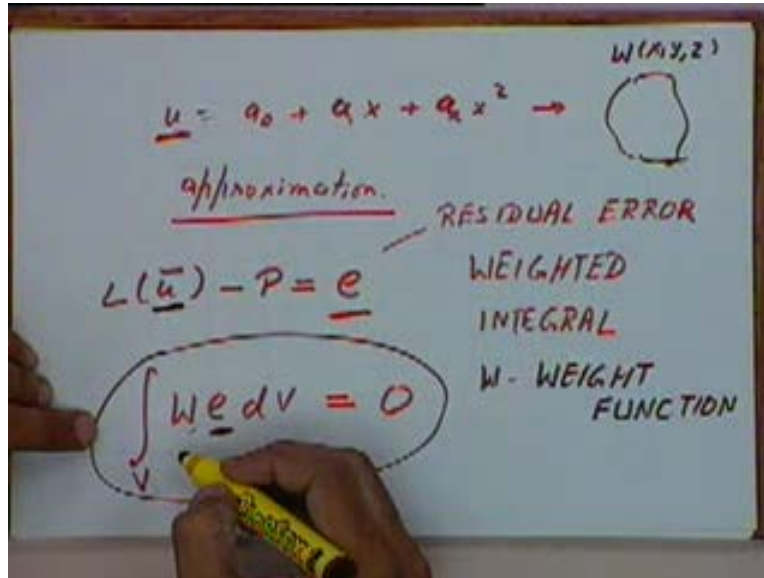 W(x,y,z)
u = a₀ + a₁x + a₂x² →
approximation.
RESIDUAL ERROR
L(ū) - P = e
WEIGHTED
INTEGRAL
W - WEIGHT
FUNCTION
∫ W e dV = 0
V